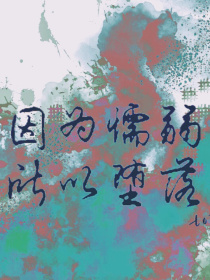 因为懦弱
所以堕落